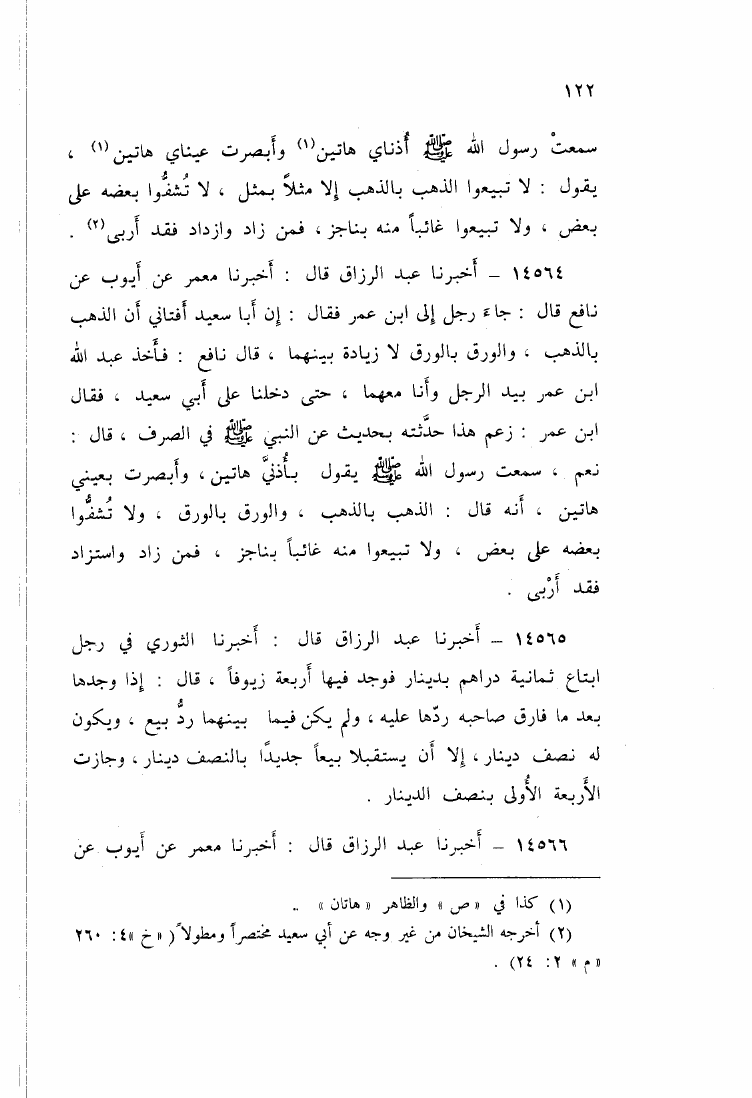 ١٢٢
سمعتْ رسول الله ﷺ أُذناي هاتين(١) وأبصرت عيناي هاتين(١) ،
يقول : لا تبيعوا الذهب بالذهب إلا مثلاً بمثل ، لا تُشفُّوا بعضه على
بعض ، ولا تبيعوا غائباً منه بناجز ، فمن زاد وازداد فقد أربى(٢) .
١٤٥٦٤ – أخبرنا عبد الرزاق قال : أخبرنا معمر عن أيوب عن
نافع قال : جاء رجل إلى ابن عمر فقال : إن أبا سعيد أفتاني أن الذهب
بالذهب ، والورق بالورق لا زيادة بينهما ، قال نافع : فأخذ عبد الله
ابن عمر بيد الرجل وأنا معهما ، حتى دخلنا على أبي سعيد ، فقال
ابن عمر : زعم هذا حدَّثته بحديث عن النبي ﷺ في الصرف ، قال :
نعم ، سمعت رسول الله ﷺ يقول بأُذنيَّ هاتين ، وأبصرت بعيني
هاتين ، أنه قال : الذهب بالذهب ، والورق بالورق ، ولا تُشفُّوا
بعضه على بعض ، ولا تبيعوا منه غائباً بناجز ، فمن زاد واستزاد
فقد أَرْبى .
١٤٥٦٥ – أخبرنا عبد الرزاق قال : أخبرنا الثوري في رجل
ابتاع ثمانية دراهم بدينار فوجد فيها أربعة زيوفاً ، قال : إذا وجدها
بعد ما فارق صاحبه ردّها عليه ، ولم يكن فيما بينهما ردُّ بيع ، ويكون
له نصف دينار ، إلا أن يستقبلا بيعاً جديدًا بالنصف دينار ، وجازت
الأربعة الأُولى بنصف الدينار .
١٤٥٦٦ – أخبرنا عبد الرزاق قال : أخبرنا معمر عن أيوب عن
(١) كذا في « ص » والظاهر « هاتان » ..
(٢) أخرجه الشيخان من غير وجه عن أبي سعيد مختصراً ومطولاً ( « خ » ٤: ٢٦٠
« م » ٢: ٢٤) .